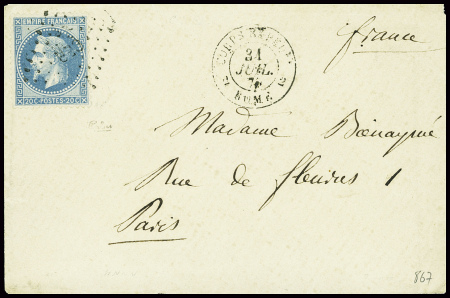 EMPIRE FRANÇAIS
20C·POSTES·20C
CORPS EXPED.
2 31 2
JUIL.
70
ROME
france
Madame Bienaymé
Rue de fleurus 1
Paris
867